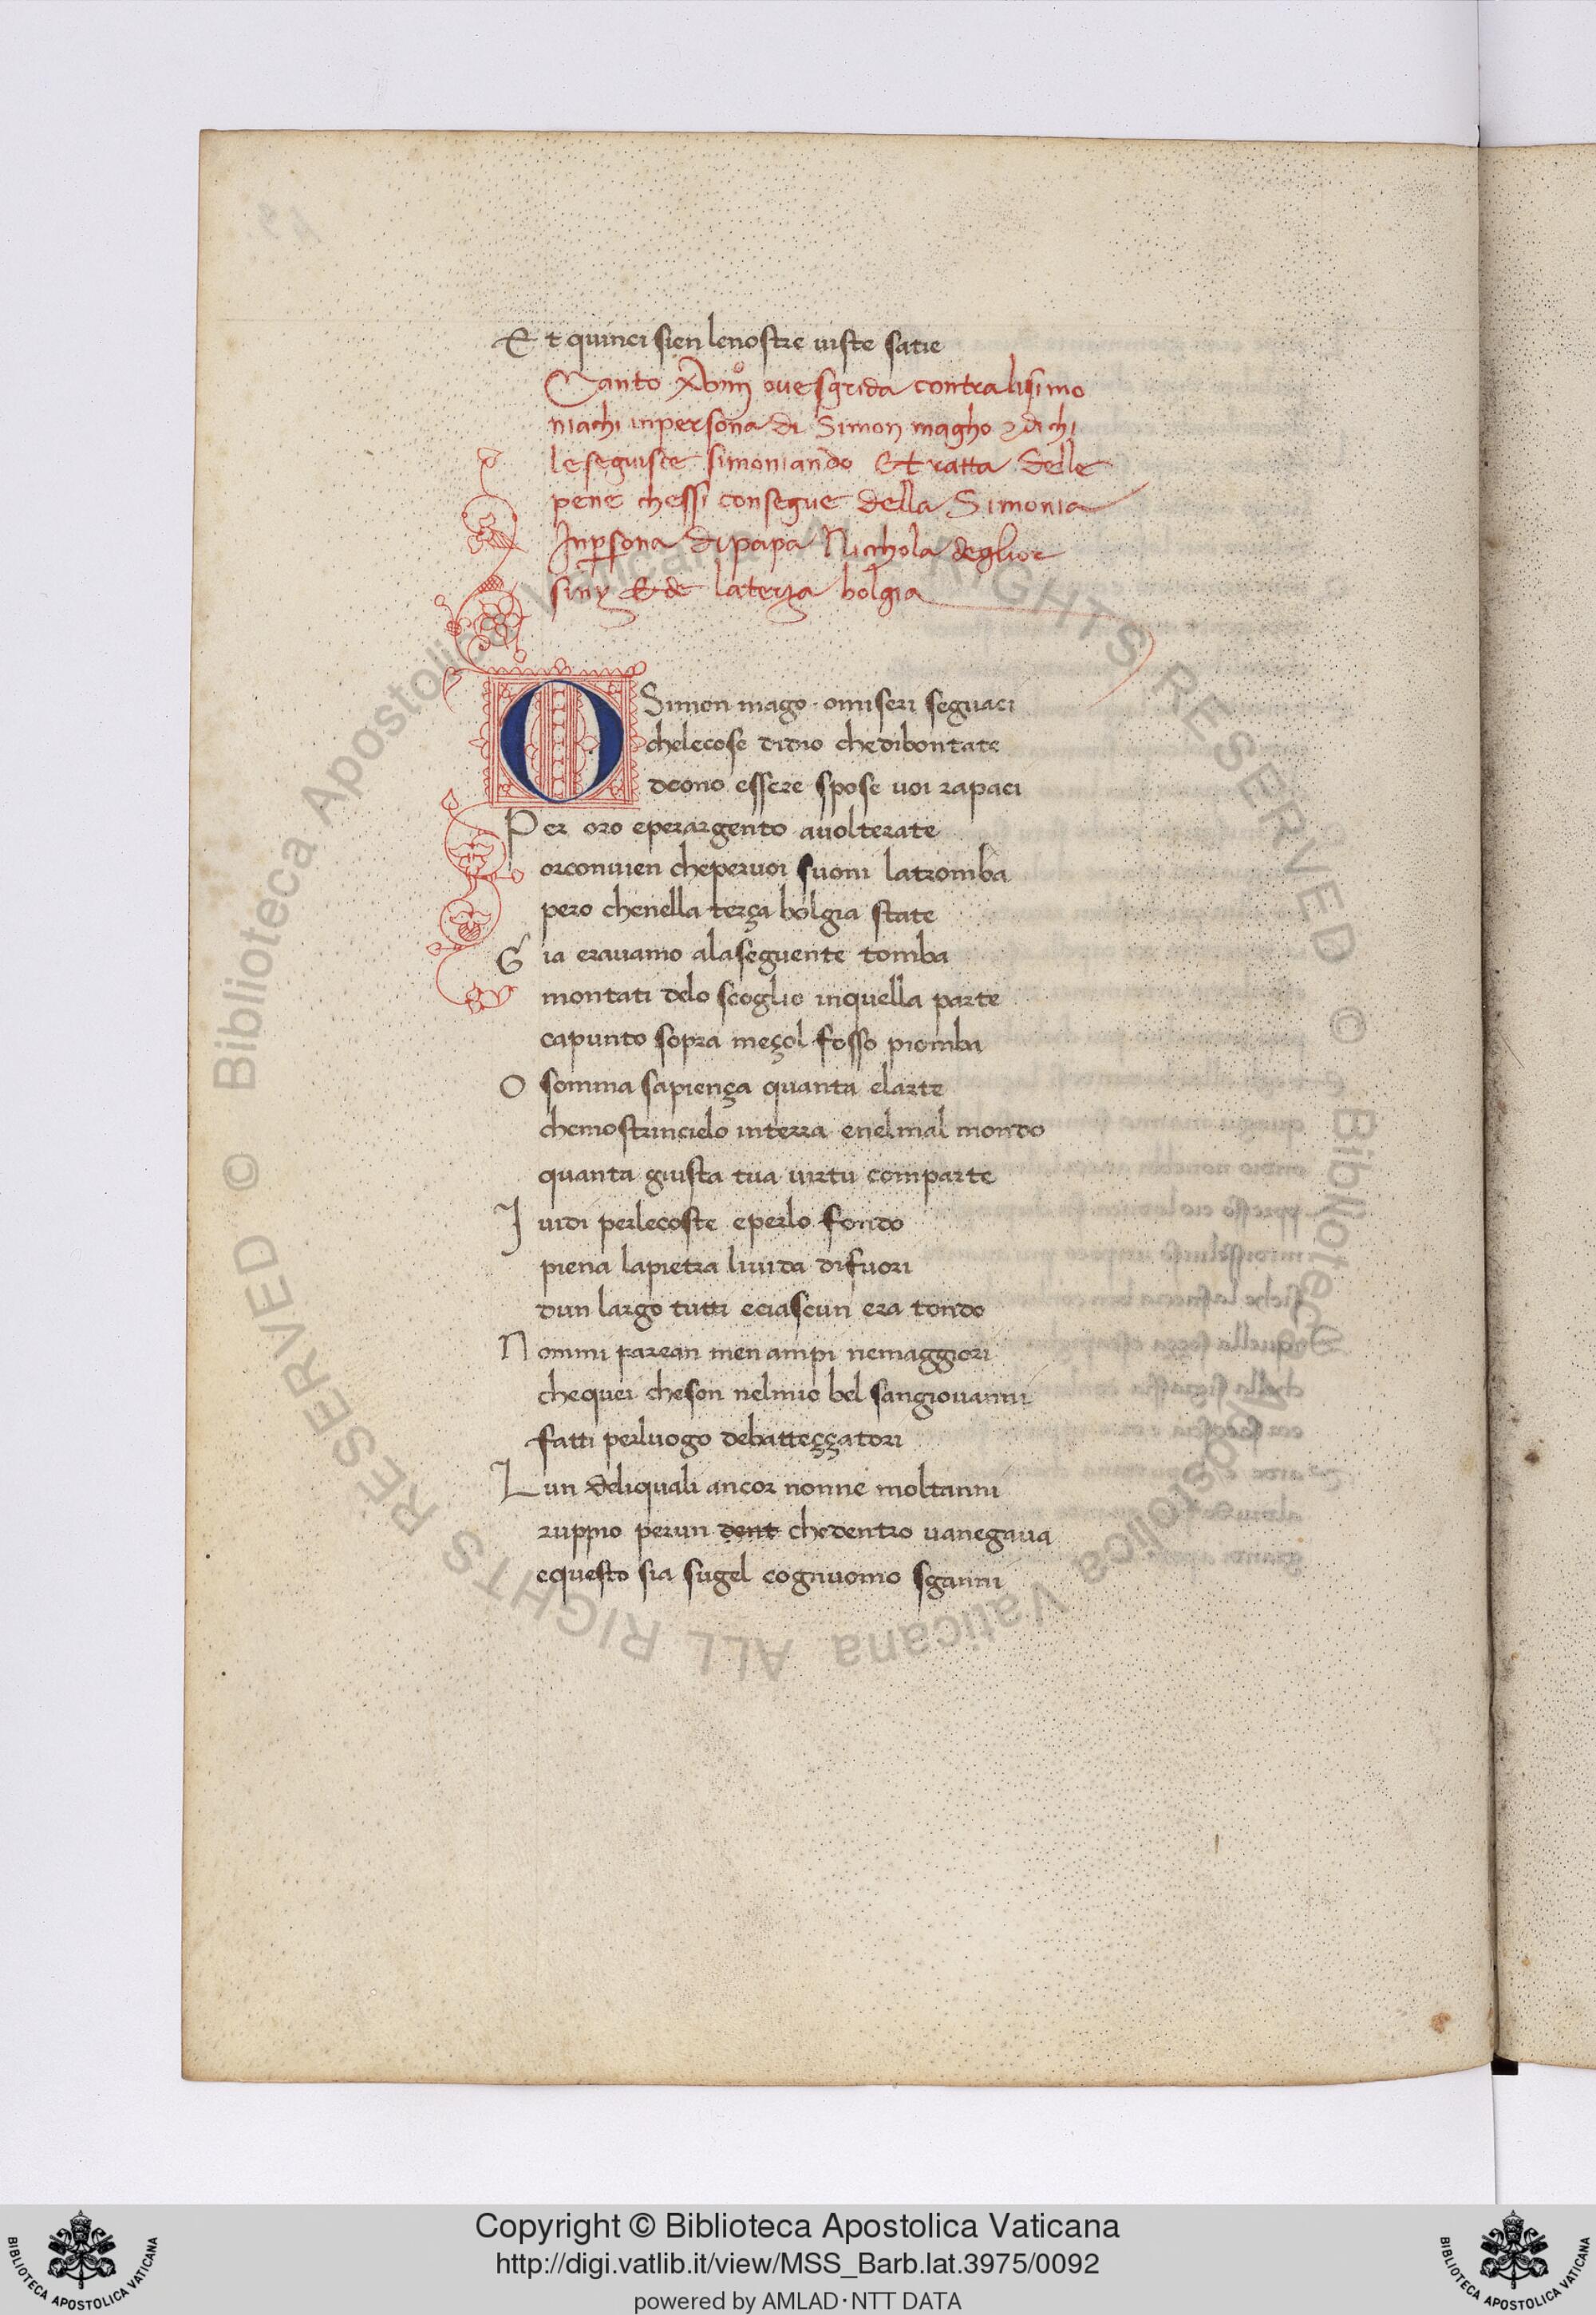 Et quinci sien lenostre uiste satie
Canto xviiii° oue sgrida contra lisimo
niachi inpersona di Simon magho & di chi
le seguisce simoniando Et tratta delle
pene chessi consegue della Simonia
Inpersona di papa Nicchola deglior
siny Et de la terza bolgia
O Simon mago · omiseri seguaci
chelecose didio chedibontate
deono essere spose uoi rapaci
Per oro eperargento auolterate
orconuien cheperuoi suoni latromba
pero chenella terça bolgia state
Gia erauamo alaseguente tomba
montati delo scoglio inquella parte
capunto sopra meçol fosso piomba
O somma sapiença quanta elarte
chemostrincielo interra enelmal mondo
quanta giusta tua uirtu comparte
I uidi perlecoste eperlo fondo
piena lapietra liuida difuori
dun largo tutti eciascun era tondo
Nommi parean men ampi nemaggiori
chequei cheson nelmio bel sangiouanni
fatti perluogo debatteççatori
Lun deliquali ancor nonne moltanni
ruppio perun dent chedentro uanegaua
equesto sia sugel cognuomo sganni
© Biblioteca Apostolica Vaticana ALL RIGHTS RESERVED © Biblioteca Apostolica Vaticana ALL RIGHTS RESERVED
Copyright © Biblioteca Apostolica Vaticana
http://digi.vatlib.it/view/MSS_Barb.lat.3975/0092
powered by AMLAD·NTT DATA
BIBLIOTECA APOSTOLICA VATICANA
BIBLIOTECA APOSTOLICA VATICANA